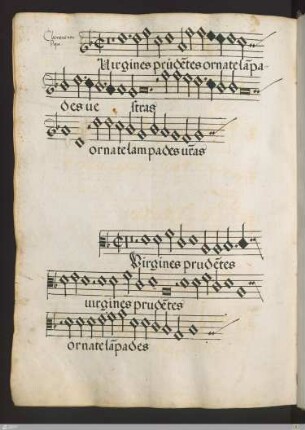 Clemens non
Papa
Virgines prudẽtes ornate lãpa-
des ve stras
ornate lampades vr̃as
Virgines prudẽtes
virgines prudẽtes
ornate lãpades